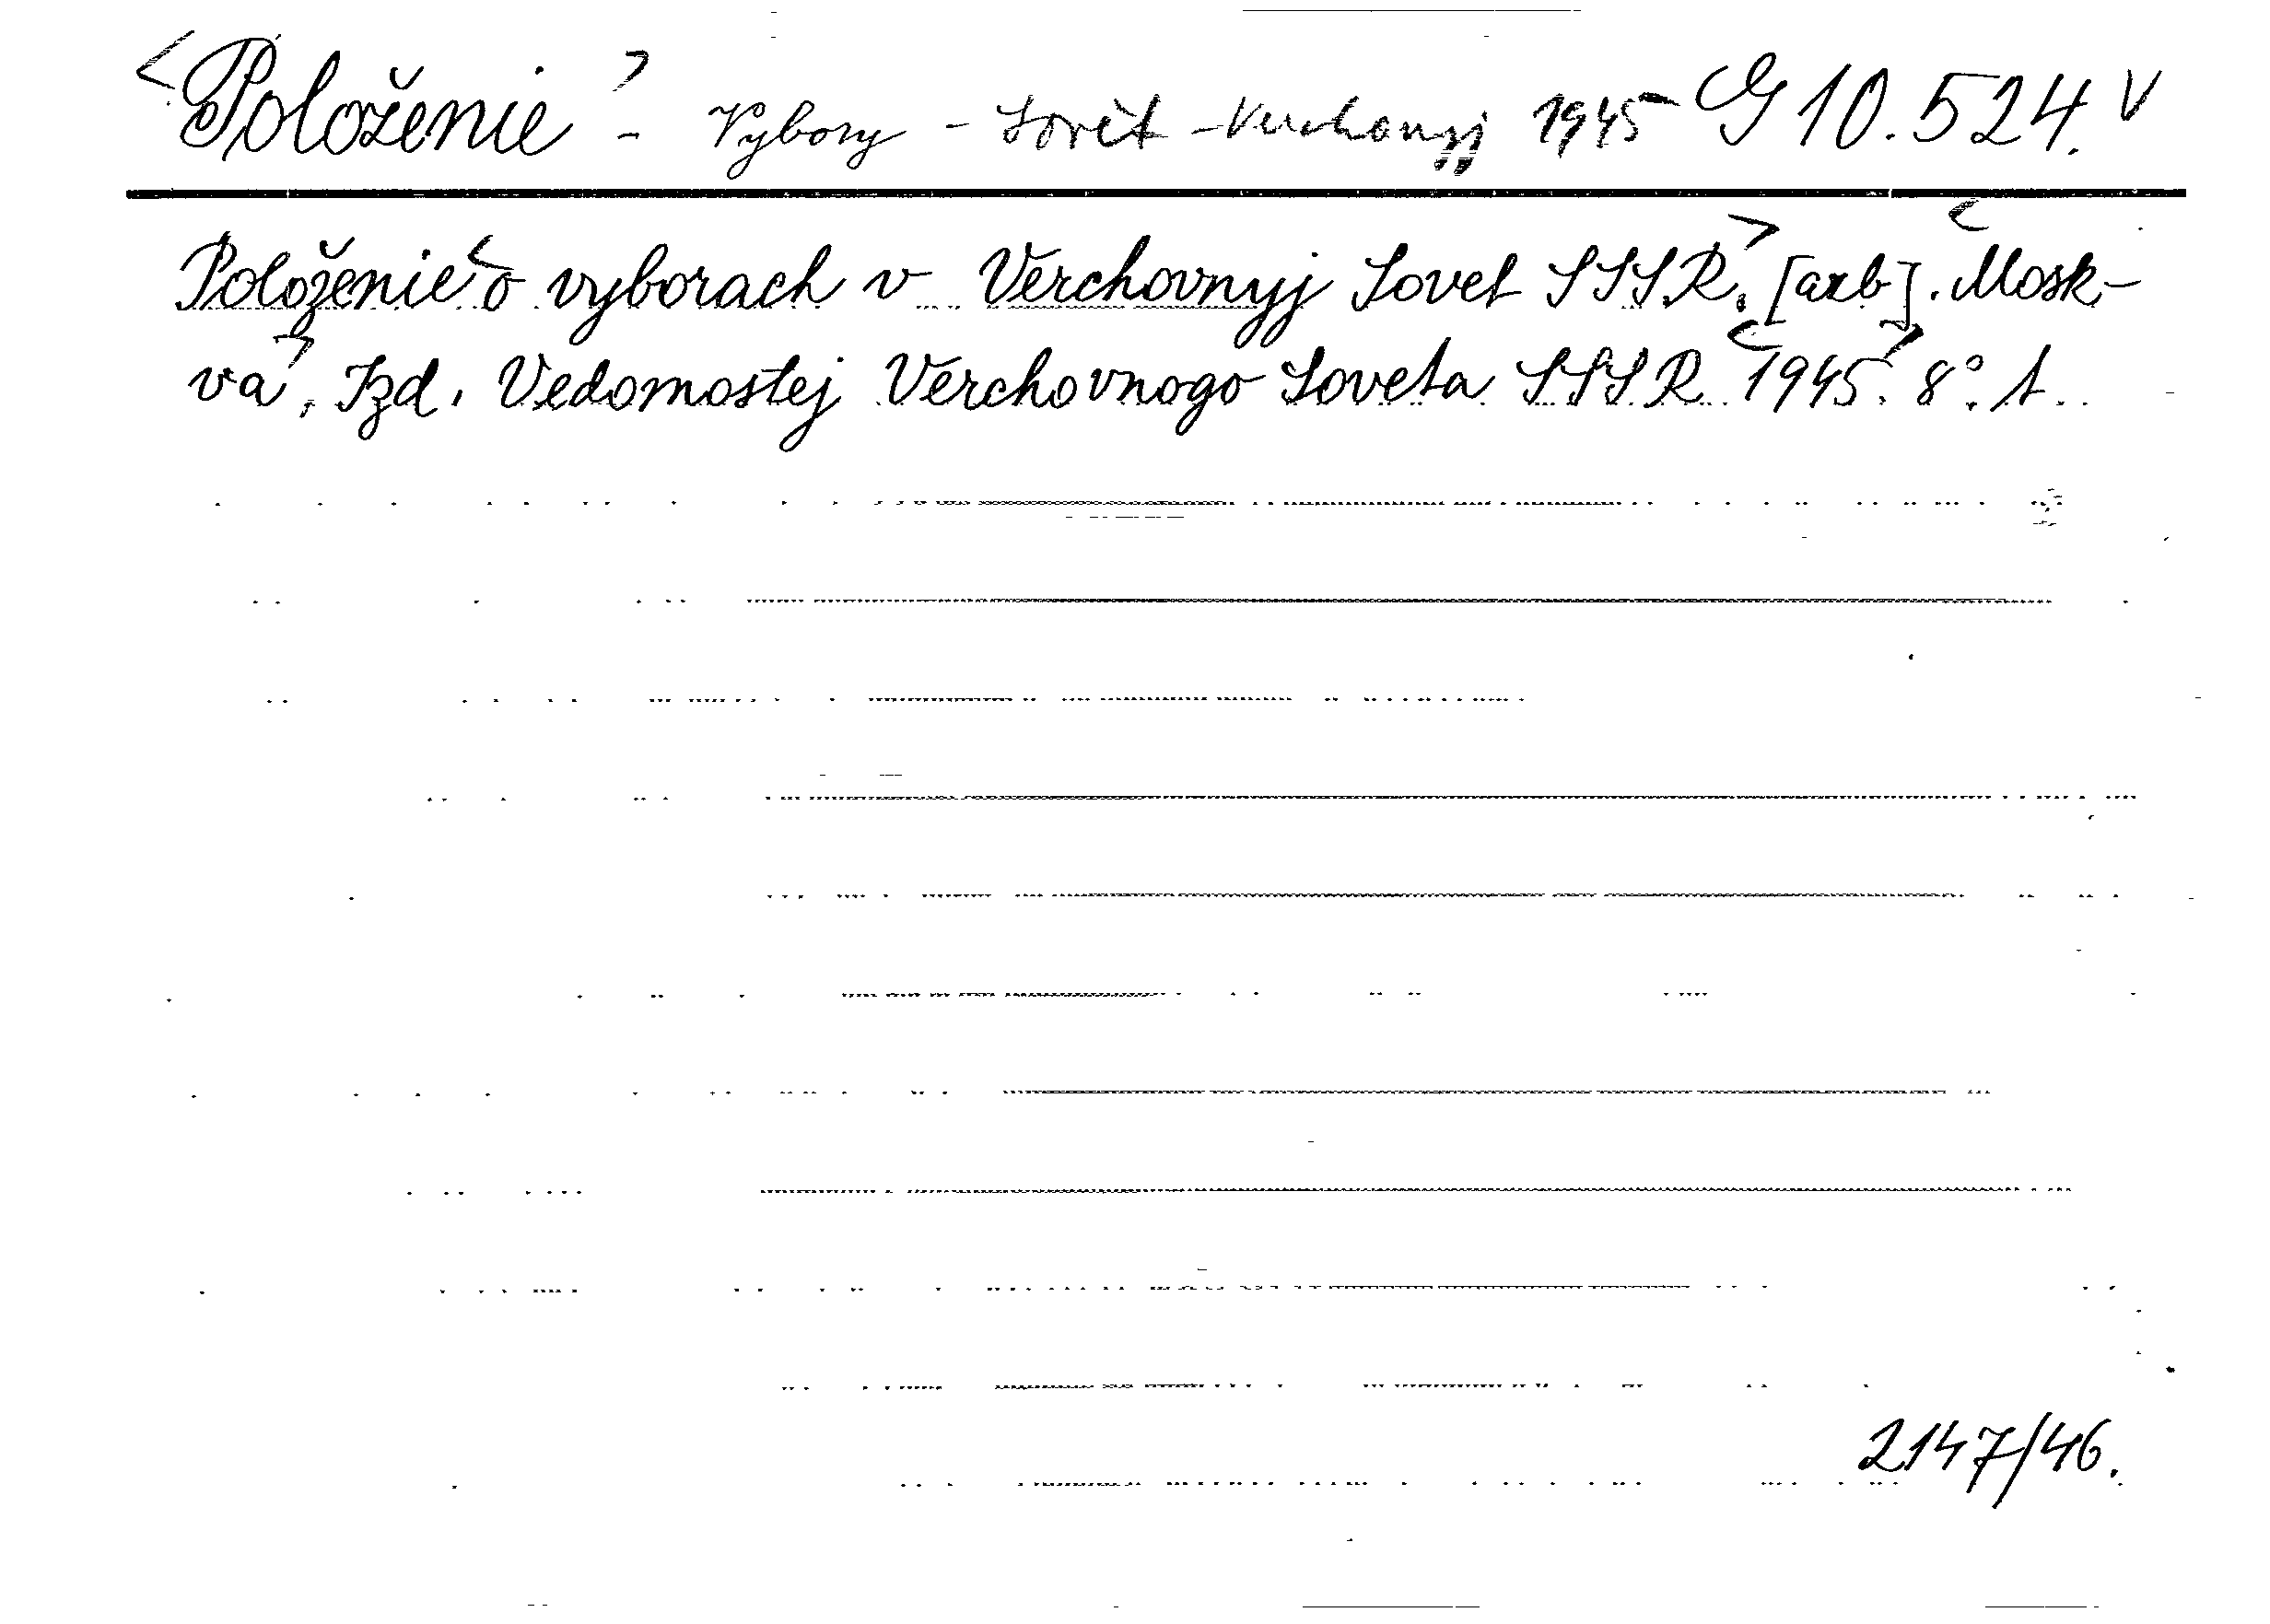 <Položenie> - Vybory - Sovět - Verchovnyj 1945 G 10.524. V
Položenie <o vyborach v Verchovnyj Sovet SSSR>. [azb]. <Mosk-
va>, Izd. Vedomostej Verchovnogo Soveta SSSR <1945>. 8°. 1.
2147/46.